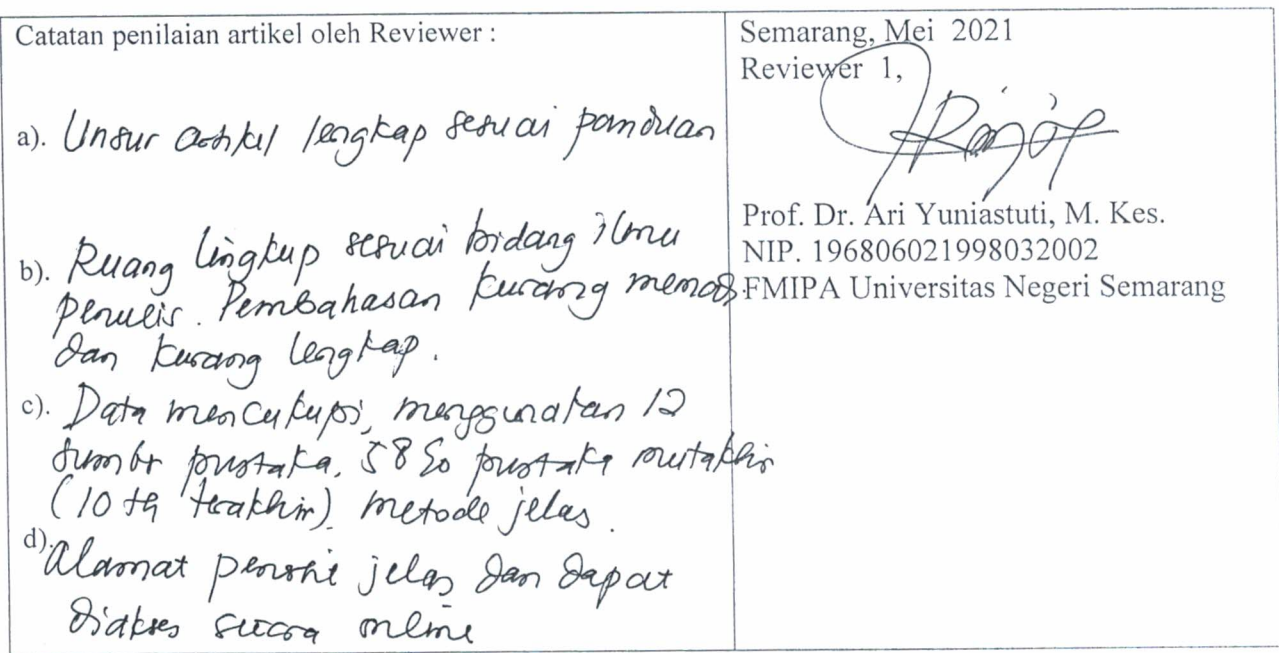 Catatan penilaian artikel oleh Reviewer :
a). Unsur artikel lengkap sesuai panduan
b). Ruang lingkup sesuai bidang ilmu
penulis. Pembahasan kurang
dan kurang lengkap.
c). Data mencukupi, menggunakan 12
sumbr pustaka. 58% pustaka mutakhir
(10 th terakhir). metode jelas.
d). Alamat jelas dan dapat
diakses secara online
Semarang, Mei 2021
Reviewer 1,
Prof. Dr. Ari Yuniastuti, M. Kes.
NIP. 196806021998032002
FMIPA Universitas Negeri Semarang